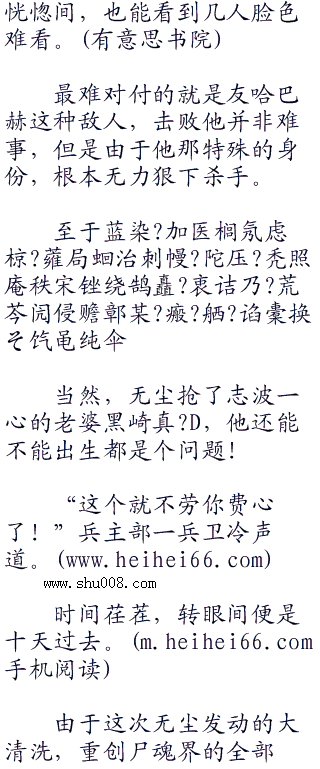 恍惚间，也能看到几人脸色
难看。(有意思书院)
最难对付的就是友哈巴
赫这种敌人，击败他并非难
事，但是由于他那特殊的身
份，根本无力狠下杀手。
至于蓝染?加医榈氖虑
椋?蕹局蛔治刺幔?陀压?秃照
庵秩宋锉绕鹄矗?衷诘乃?荒
芩闶侵赡鄣某?瘢?舾?谄橐换
そ饩黾纯伞
当然，无尘抢了志波一
心的老婆黑崎真?D，他还能
不能出生都是个问题！
“这个就不劳你费心
了！”兵主部一兵卫冷声
道。(www.heihei66.com)
www.shu008.com
时间荏苒，转眼间便是
十天过去。(m.heihei66.com
手机阅读)
由于这次无尘发动的大
清洗，重创尸魂界的全部